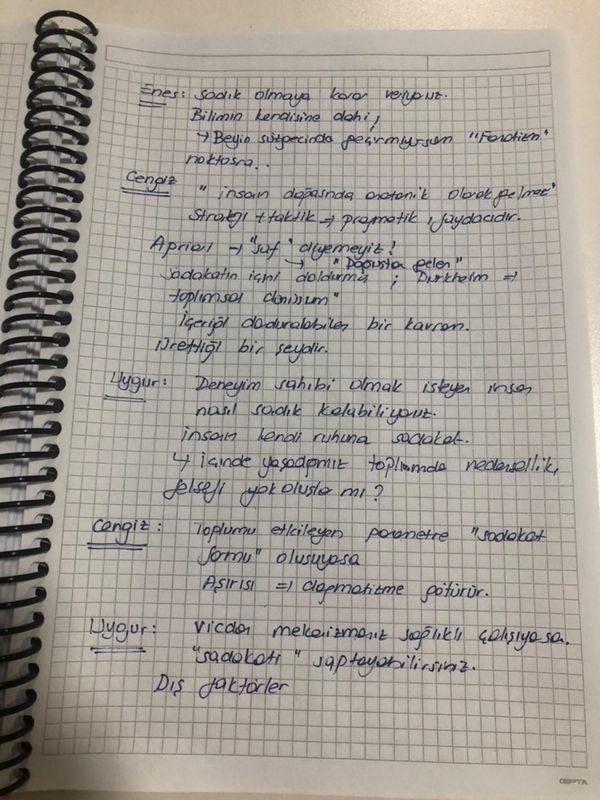 Enes: Sadık olmaya karar veriyoruz.
Bilimin kendisine dahi;
→ Beyin süzgecinde geçirmiyorsam "Fanatizm"
noktasına..
Cengiz
" insanın doğasında otomatik olarak gelmez"
Strateji + taktik → pragmatik, faydacıdır.
Apriori → "saf" diyemeyiz!
→ "Doğuştan gelen"
Sadakatin içini doldurma ; Durkheim ⇒
toplumsal dönüşüm"
İçeriği doldurabilen bir kavram.
Ürettiği bir şeydir.
Uygur: Deneyim sahibi olmak isteyen insan
nasıl sadık kalabiliyoruz.
insanın kendi ruhuna sadakat.
↳ içinde yaşadığımız toplumda nedensellik,
felsefi yok oluşla mı?
Cengiz: Toplumu etkileyen parametre "sadakat
formu" oluşuyosa
Aşırısı ⇒ dogmatizme götürür.
Uygur: Vicdan mekanizmanız sağlıklı çalışıyosa.
"sadakati" saptayabilirsiniz.
Dış faktörler
GIPTA